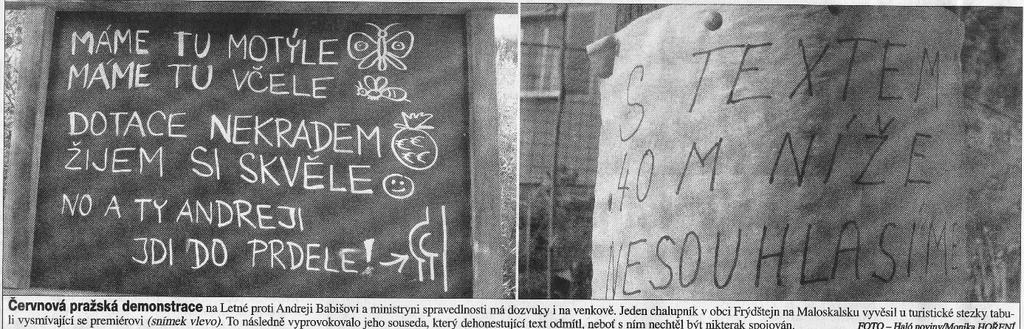 MÁME TU MOTÝLE
MÁME TU VČELE
DOTACE NEKRADEM
ŽIJEM SI SKVĚLE
NO A TY ANDREJI
JDI DO PRDELE!
S TEXTEM
40 M NÍŽE
NESOUHLASÍME
Červnová pražská demonstrace na Letné proti Andreji Babišovi a ministryni spravedlnosti má dozvuky i na venkově. Jeden chalupník v obci Frýdštejn na Maloskalsku vyvěsil u turistické stezky tabu-
li vysmívající se premiérovi (snímek vlevo). To následně vyprovokovalo jeho souseda, který dehonestující text odmítl, neboť s ním nechtěl být nikterak spojován. FOTO – Haló noviny/Monika HOŘENÍ